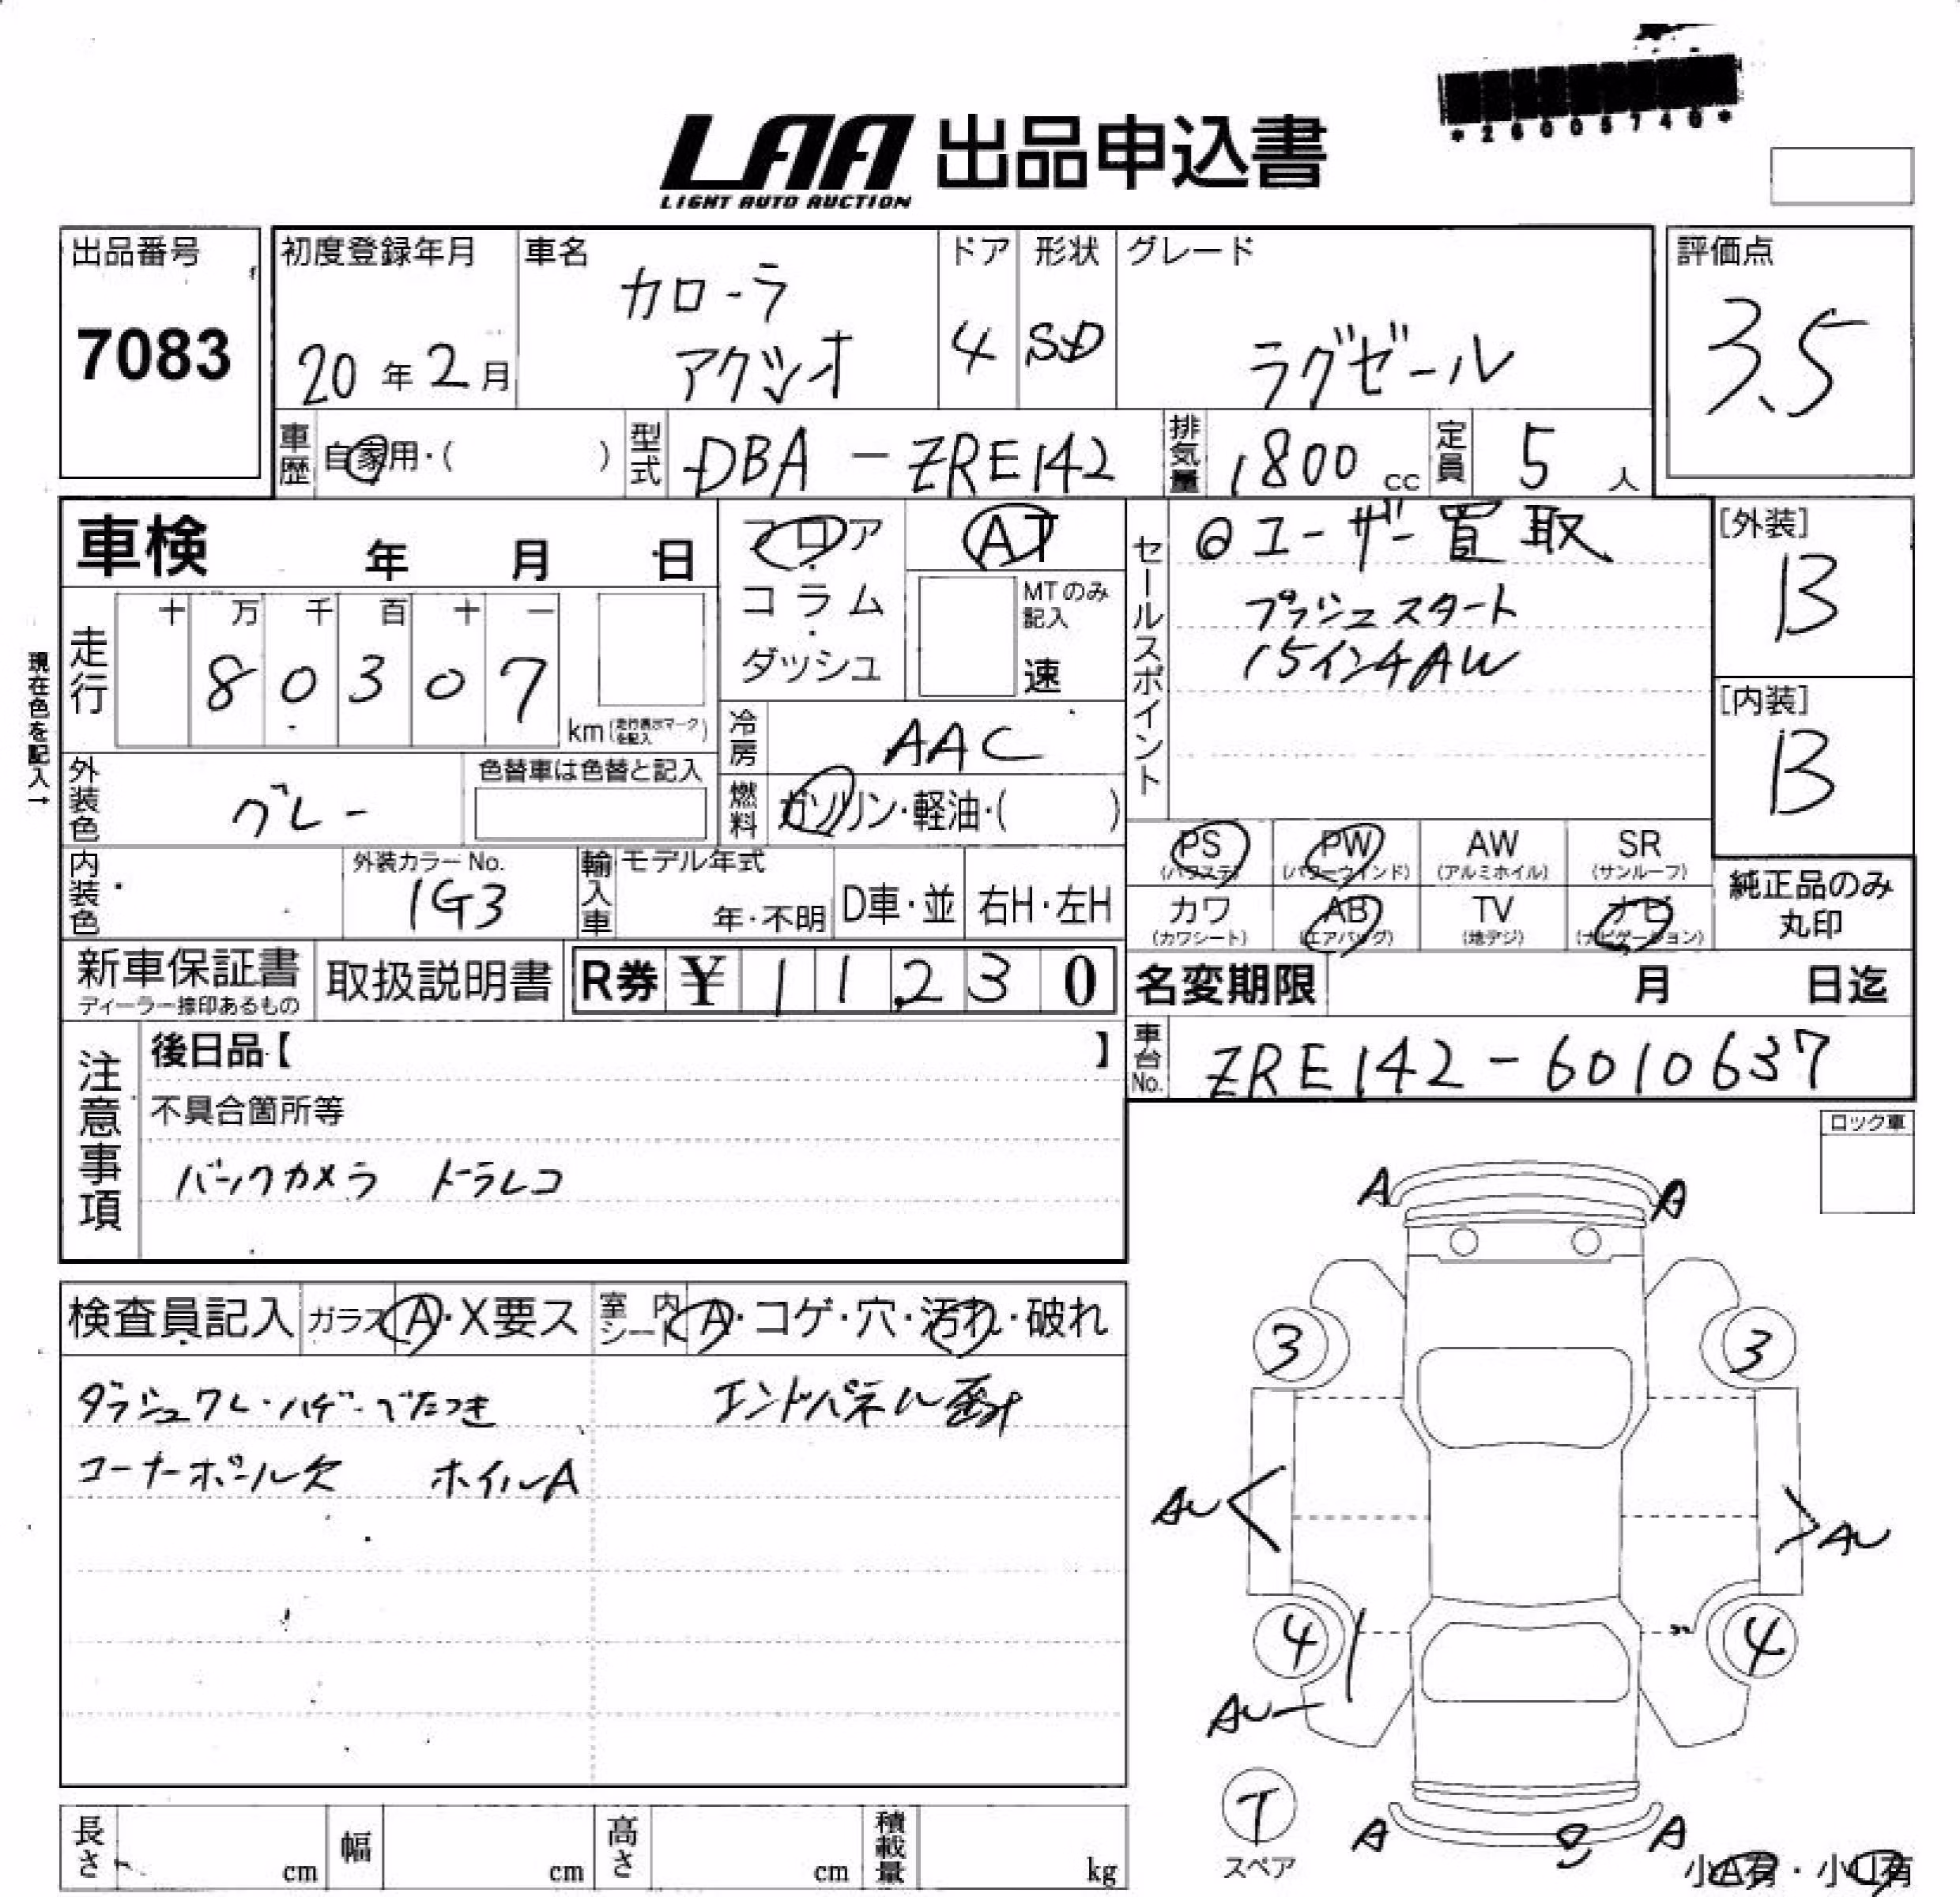 *26005740*
LAA 出品申込書
LIGHT AUTO AUCTION
出品番号
7083
初度登録年月
20年2月
車名
カローラ
アクシオ
ドア
4
形状
SD
グレード
ラグゼール
評価点
3.5
車歴 自家用・( )
型式 DBA-ZRE142
排気量 1800cc
定員 5人
車検 年 月 日
フロア
コラム
ダッシュ
AT
MTのみ
記入
速
セールスポイント
◎ユーザー買取
プッシュスタート
15インチAW
[外装]
B
[内装]
B
現在色を記入→
走行
十 万 千 百 十 一
8 0 3 0 7
km(走行表示マークを記入)
冷房 AAC
外装色 グレー
色替車は色替と記入
燃料 ガソリン・軽油・( )
PS PW AW SR
(パワステ) (パワーウインド) (アルミホイル) (サンルーフ)
カワ AB TV ナビ
(カワシート) (エアバッグ) (地デジ) (ナビゲーション)
純正品のみ
丸印
内装色
外装カラーNo.
1G3
輸入車 モデル年式
年・不明 D車・並 右H・左H
新車保証書
ディーラー捺印あるもの
取扱説明書
R券 ¥11,230
名変期限 月 日迄
車台No. ZRE142-6010637
注意事項
後日品【 】
不具合箇所等
バックカメラ ドラレコ
ロック車
検査員記入 ガラス A・X要ス 室内シート A・コゲ・穴・汚れ・破れ
ダッシュワレ・ハゲ・べたつき エンドパネル
コーナーポール欠 ホイルA
A A
3 3
AU AU
4 4
AU
T
スペア
A A
小A有・小U有
長さ cm 幅 cm 高さ cm 積載量 kg